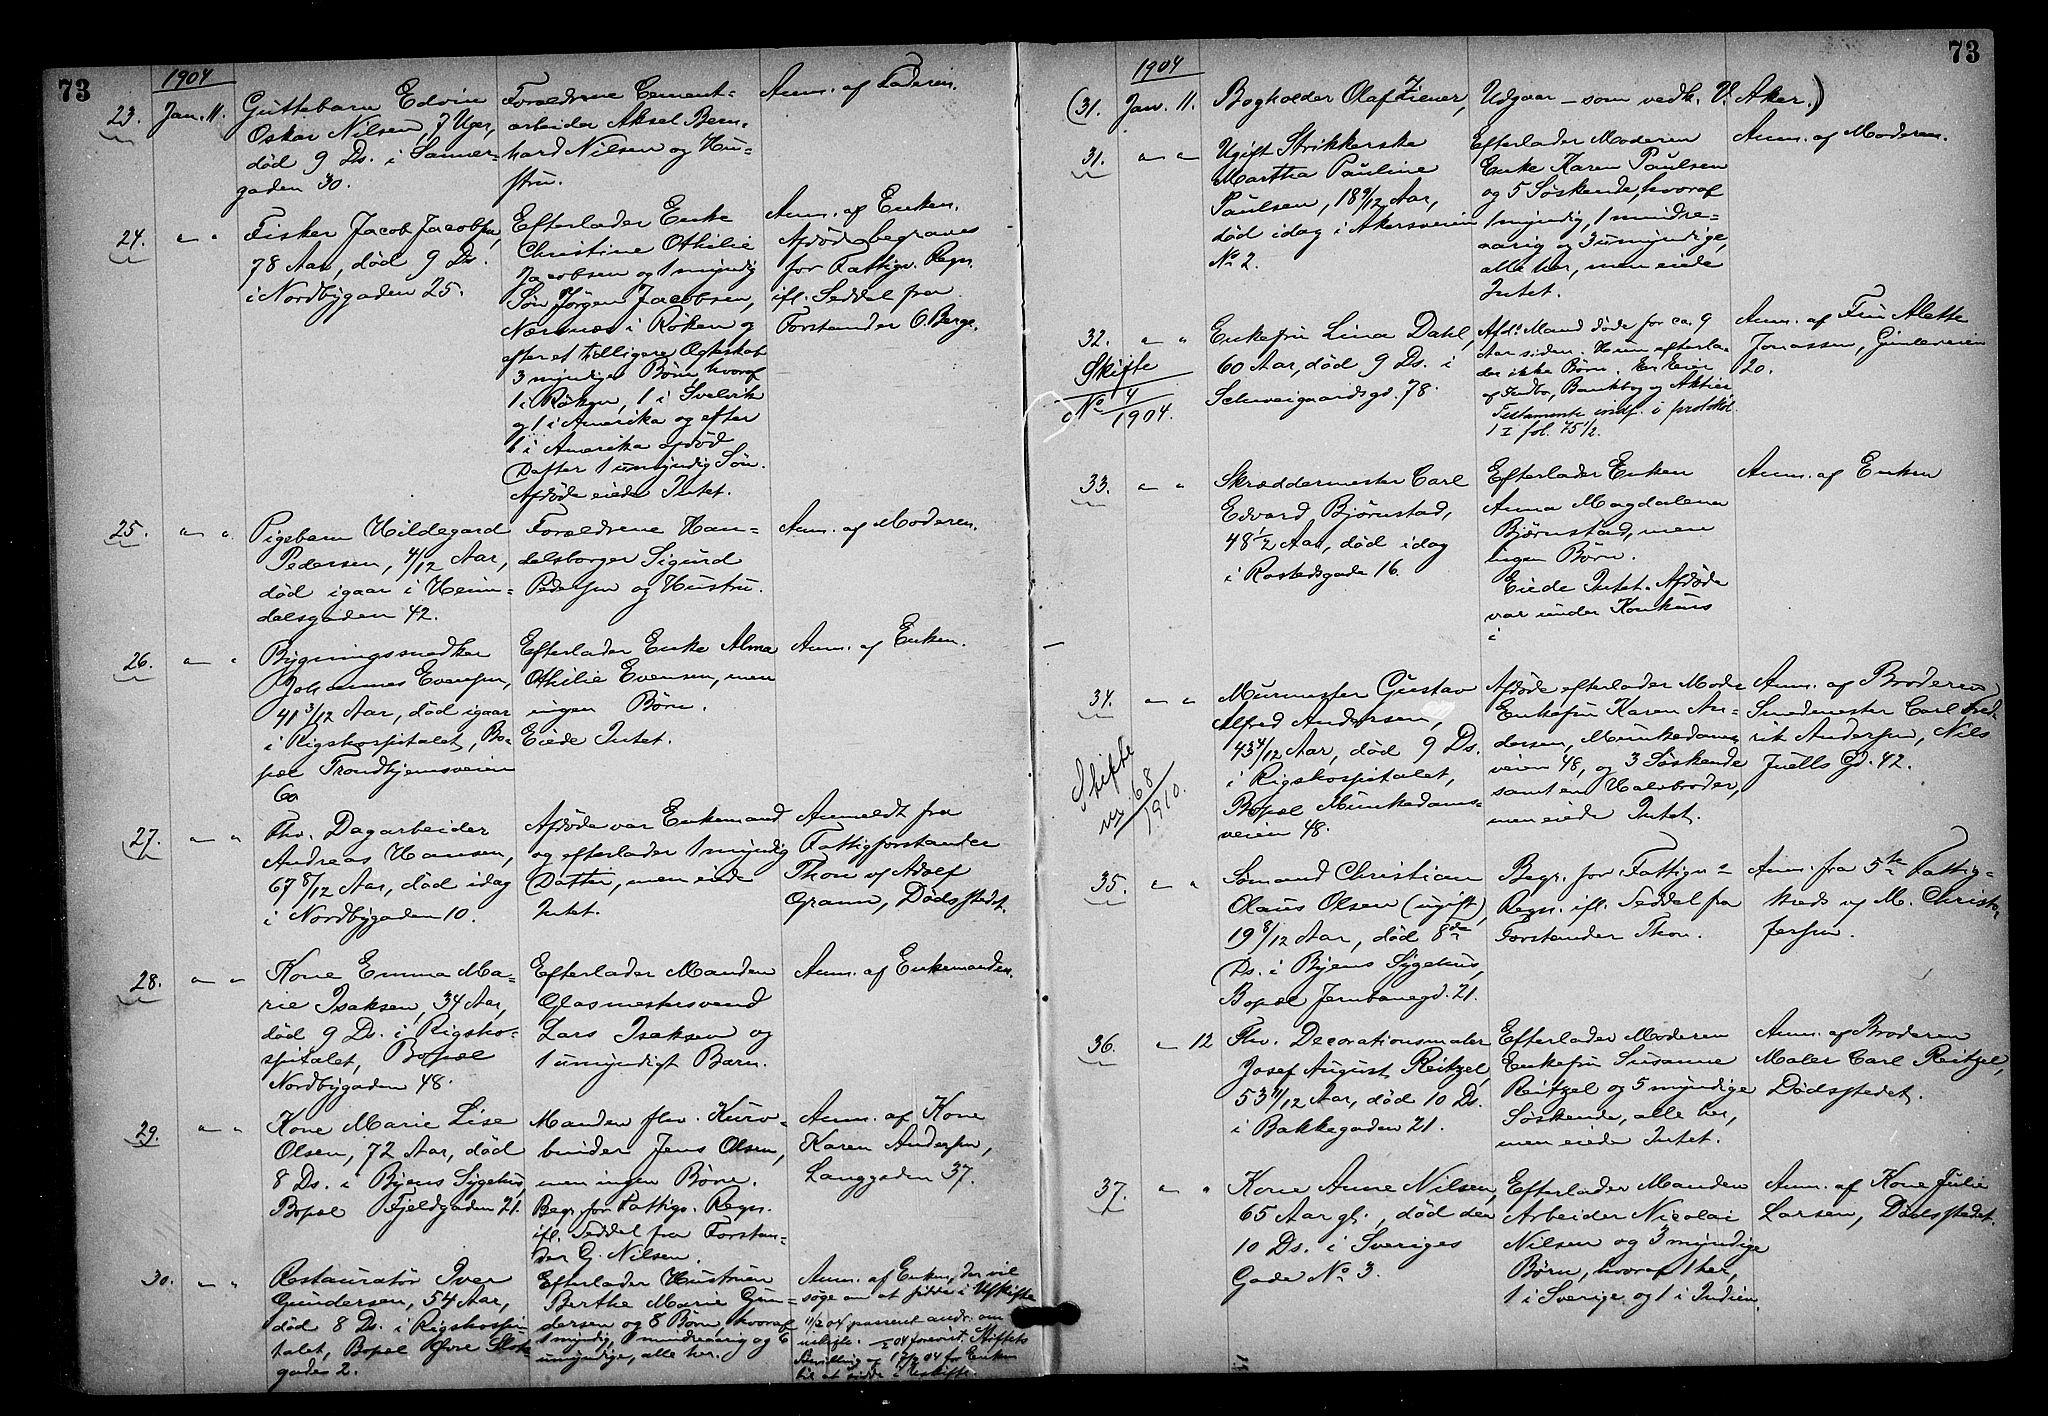 73
1904
23. Jan. 11.
Guttebarn Edvin
Oskar Nilsen, 7 Uger,
død 9 Ds. i Sanner-
gaden 30.
Forældrene Cement-
arbeider Aksel Bern-
hard Nilsen og Hu-
stru.
Anm. af Faderen.
24. " "
Fisker Jacob Jacobsen,
78 Aar, død 9 Ds.
i Nordbygaden 25.
Efterlader Enke
Christine Othilie
Jacobsen og 1 myndig
Søn Jørgen Jacobsen,
Nærsnæs i Röken og
efter et tidligere Ægteskab
3 myndige Børn hvoraf
1 i Röken, 1 i Svelvik
og 1 i Amerika og efter
1 i Amerika afdød
Datter 1 umyndig Søn.
Afdøde eiede Intet.
Anm. af Enken.
Afdøde begraves
for Fattigv. Regn.
ifl. Seddel fra
Forstander O. Berge.
25. " "
Pigebarn Hildegard
Pedersen, 4/12 Aar,
død igaar i Heim-
dalsgaden 42.
Forældrene Han-
delsborger Sigurd
Pedersen og Hustru.
Anm. af Moderen.
26. " "
Bygningssnedker
Johannes Evensen,
41 3/12 Aar, død igaar
i Rigshospitalet, Bo-
pæl Trondhjemsveien
60
Efterlader Enke Alma
Othilie Evensen, men
ingen Børn.
Eiede Intet.
Anm. af Enken.
27. " "
Fhv. Dagarbeider
Andreas Hansen,
67 8/12 Aar, død idag
i Nordbygaden 10.
Afdøde var Enkemand
og efterlader 1 myndig
Datter, men eiede
Intet.
Anmeldt fra
Fattigforstander
Thon v/ Adolf
Gramn, Dødsstedet.
28. " "
Kone Emma Ma-
rie Isaksen, 34 Aar,
død 9 Ds. i Rigsho-
spitalet, Bopæl
Nordbygaden 48.
Efterlader Manden
Glasmestersvend
Lars Isaksen og
1 umyndigt Barn.
Anm. af Enkemanden.
29. " "
Kone Marie Lise
Olsen, 72 Aar, død
8 Ds. i Byens Sygehus,
Bopæl Fjeldgaden 21.
Manden fhv. Kurv-
binder Jens Olsen,
men ingen Børn.
Begr. for Fattigv. Regn.
ifl. Seddel fra Forstan-
der G. Nilsen.
Anm. af Kone
Karen Andersen,
Langgaden 37.
30. " "
Restauratør Iver
Gundersen, 54 Aar,
død 8 Ds. i Rigshospi-
talet, Bopæl Øvre Slots-
gade 2.
Efterlader Hustruen
Berthe Marie Gun-
dersen og 8 Børn hvoraf
1 myndig, 1 mindreaarig og 6
umyndige, alle her.
Anm. af Enken, der vil
søge om at sidde i Uskifte
11/2 04 passeret andr. om
uskifte. 04 forevist Stiftets
Bevilling af 17/2 04 for Enken
til at sidde i Uskifte.
73
1904
(31. Jan. 11. Bogholder Olaf Ziener, Udgaar – som vedk. V. Aker.)
31. " "
Ugift Strikkerske
Martha Pauline
Paulsen, 18 9/12 Aar,
død idag i Akersveien
No 2.
Efterlader Moderen
Enke Karen Paulsen
og 5 Søskende, hvoraf
1 myndig, 1 mindre-
aarig og 3 umyndige,
alle her, men eiede
Intet.
Anm. af Moderen.
32. " "
Skifte
No 4/1904.
Enkefru Lina Dahl,
60 Aar, død 9 Ds. i
Schweigaardsgd. 78.
Afd. Mand døde for ca. 9
Aar siden. Hun efterla-
der ikke Børn. En Eier
af Indbo, Bankbog og Aktier
Testamente indf. i protokol
1 I fol. 75 1/2.
Anm. af Frü Alette
Jonassen, Gimleveien
20.
33. " "
Skræddermester Carl
Edvard Bjørnstad,
48 1/2 Aar, død idag
i Rostedsgade 16.
Efterlader Enken
Anna Magdalena
Bjørnstad, men
ingen Børn.
Eiede Intet. Afdøde
var under Konkurs
i
Anm. af Enken
34. " "
Skifte
nr. 68/1910.
Murmester Gustav
Alfred Andersen,
43 4/12 Aar, død 9 Ds.
i Rigshospitalet,
Bopæl Munkedams-
veien 48.
Afdøde efterlader Mode
Enkefru Karen An-
dersen, Munkedams
veien 48, og 3 Søskende
samt en Halvbroder,
men eiede Intet.
Anm. af Broderen
Smedmester Carl Fred-
rik Andersen, Nils
Juells Gd. 42.
35. " "
Sømand Christian
Olaus Olsen (ugift),
19 8/12 Aar, død 8de
Ds. i Byens Sygehus,
Bopæl Jernbanegd. 21.
Begr. for Fattigv.
Regn. ifl. Seddel fra
Forstander Thon.
Anm. fra 5te Fattig-
kreds v/ M. Christo-
fersen.
36. " 12
Fhv. Decorationsmaler
Josef August Reitzel,
53 11/12 Aar, død 10 Ds.
i Bakkegaden 21.
Efterlader Moderen
Enkefru Susanne
Reitzel og 5 myndige
Søskende, alle her,
men eiede Intet.
Anm. af Broderen
Maler Carl Reitzel,
Dødsstedet.
37. " "
Kone Anne Nilsen,
65 Aar gl., død den
10 Ds. i Sveriges
Gade No 3.
Efterlader Manden
Arbeider Nicolai
Nilsen og 3 myndige
Børn, hvoraf 1 her,
1 i Sverige og 1 i Indien.
Anm. af Kone Julie
Larsen, Dødsstedet.